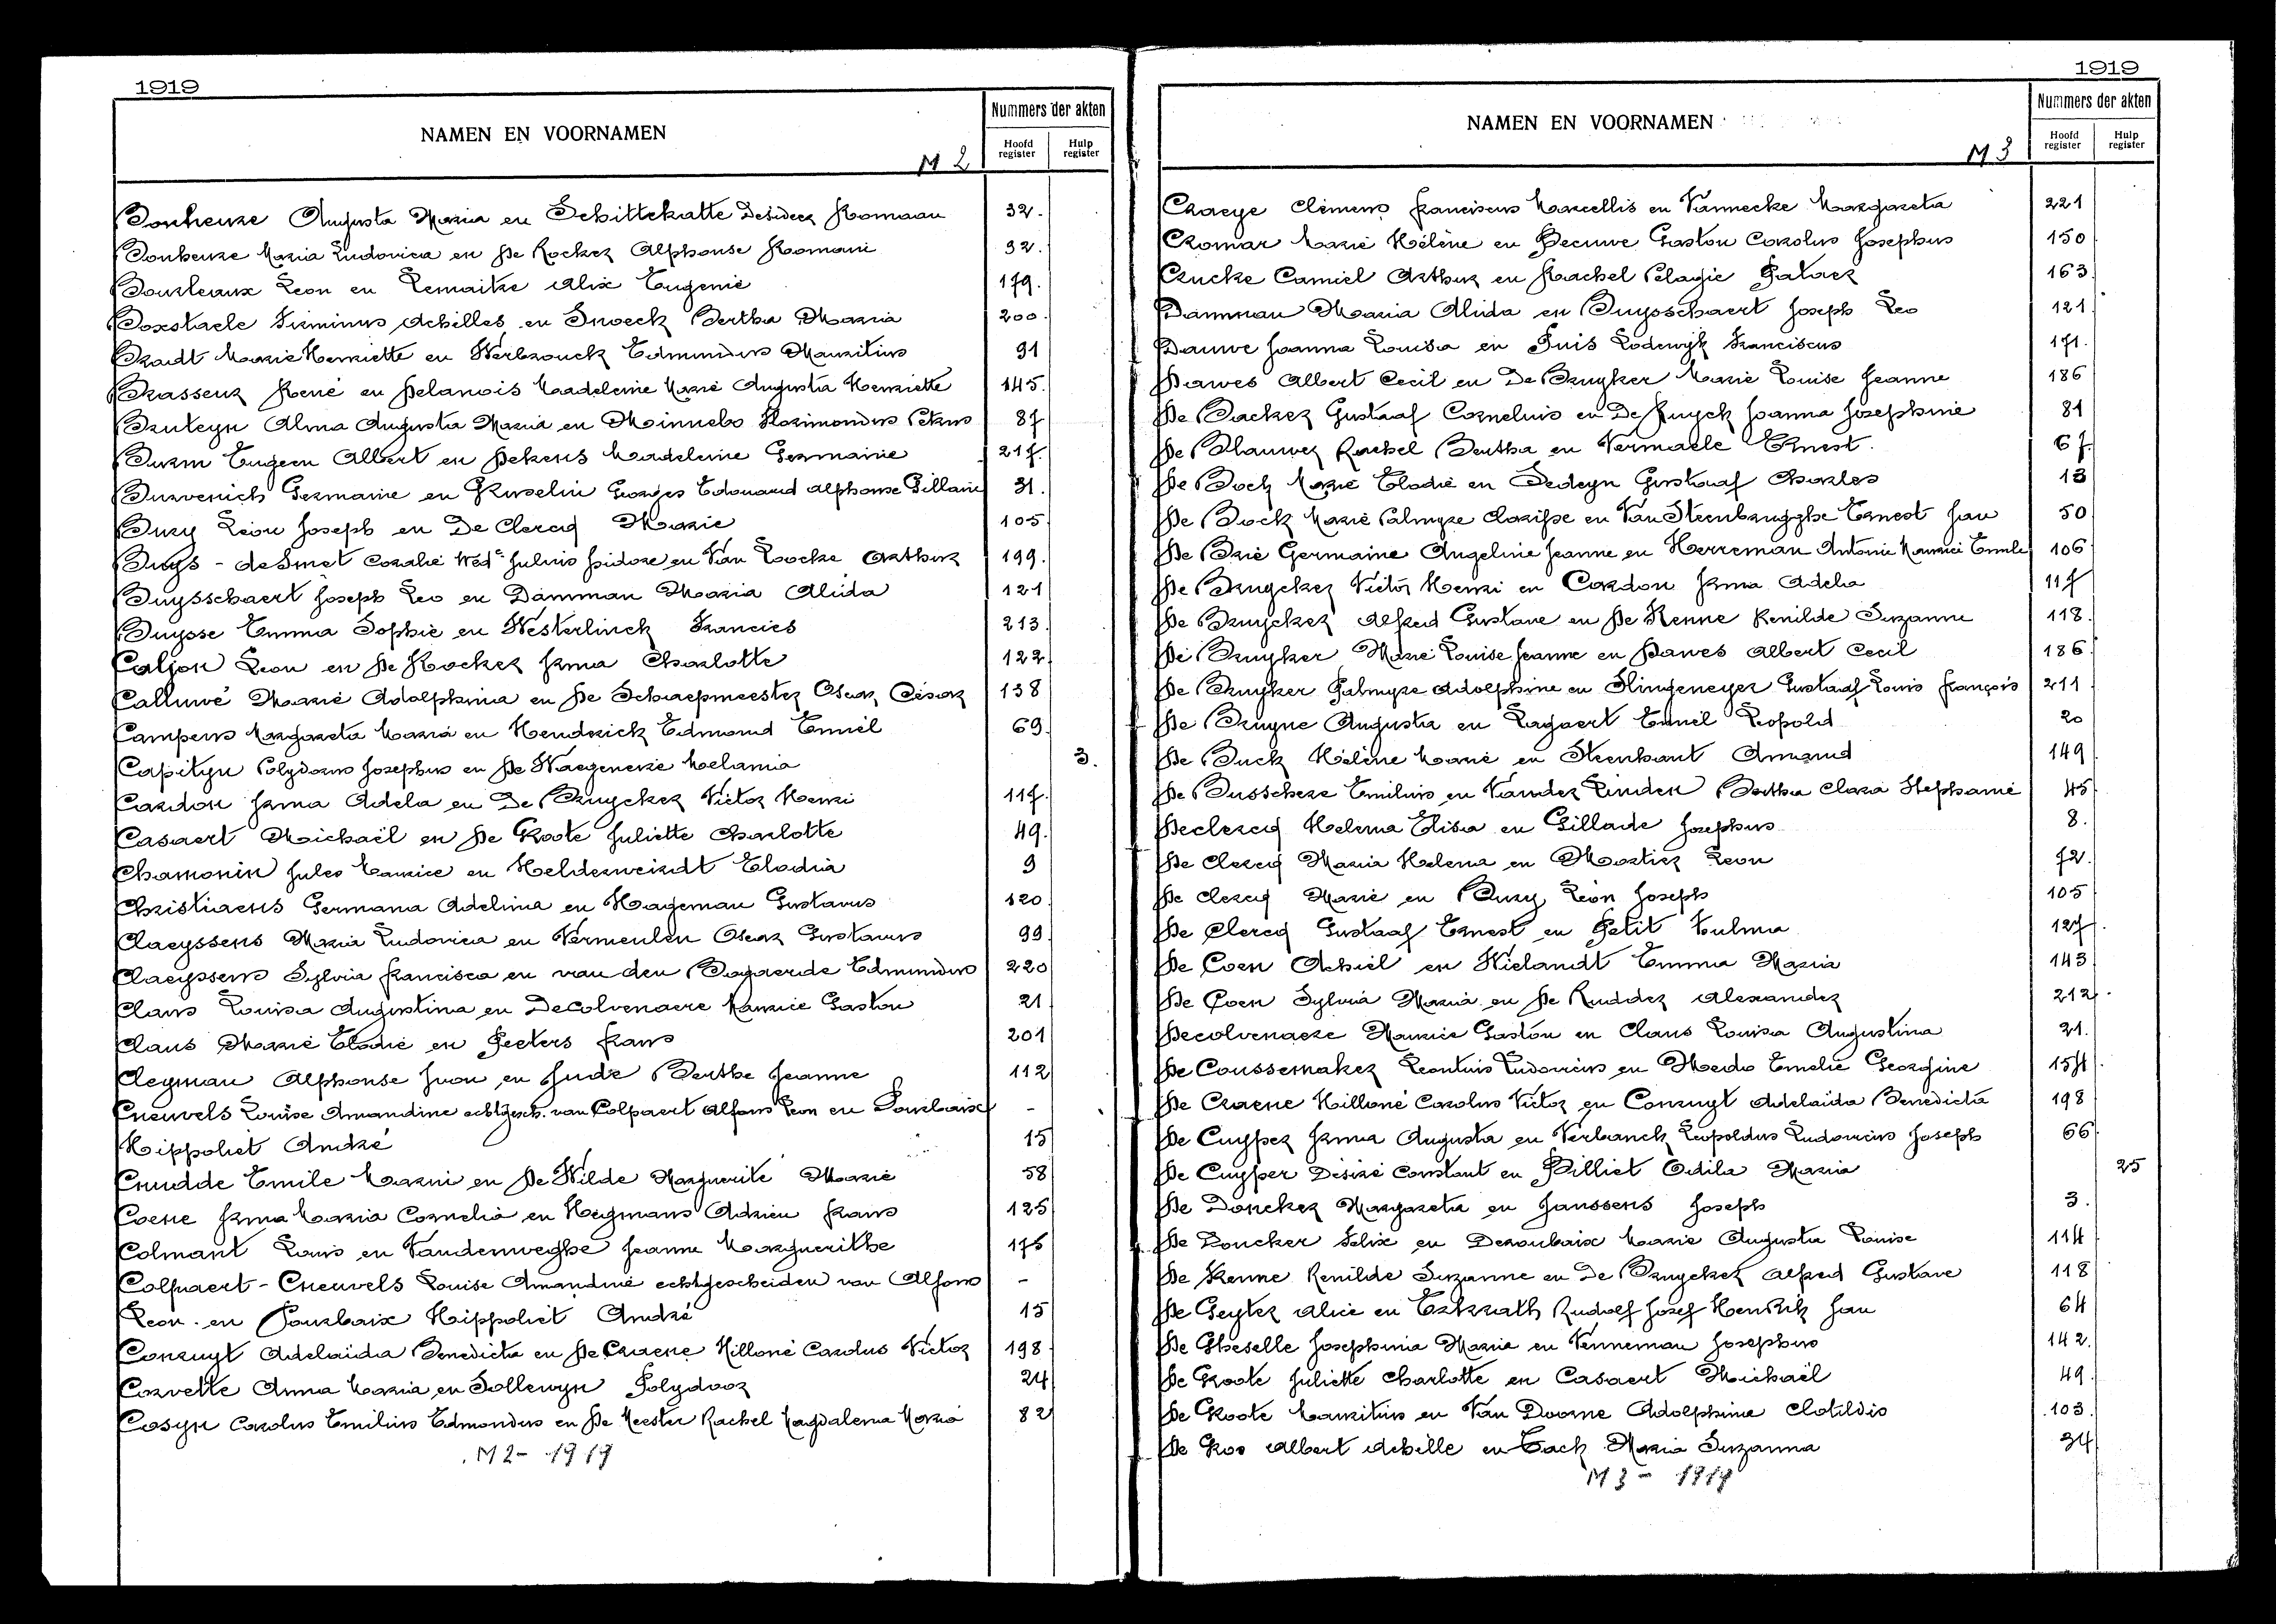 1919
NAMEN EN VOORNAMEN
M 2
Nummers der akten
Hoofd register
Hulp register
Bonheure Augusta Maria en Schittekatte Desideer Romaan 32.
Bonheure Maria Ludovica en De Rocker Alphonse Romani 32.
Bourleaux Leon en Lemaitre Alix Eugenie 179.
Boxstaele Firminus Achilles en Snoeck Bertha Maria 200.
Bradt Marie Henriette en Verbrouck Edmundus Mauritius 91
Brasseur René en Delanois Madeleine Marie Augusta Henriette 145.
Bruteyn Alma Augusta Maria en Minnebo Florimondus Petrus 87
Burm Eugeen Albert en Dekens Madeleine Germaine 217.
Burvenich Germaine en Georges Edouard Alphonse 31.
Bury Léon Joseph en De Clercq Marie 105
Buys - de Smet Coralie Wed. Julius Isidore en Van Loocke Arthur 199.
Buysschaert Joseph Leo en Damman Maria Alida 121
Buysse Emma Sophie en Westerlinck Francies 213.
Caljon Leon en De Kocker Irma Charlotte 122.
Calluwé Marie Adolphina en De Schaepmeester Oscar César 138
Campens Margareta Maria en Hendrick Edmond Emiel 69.
Capityn Polydorus Josephus en De Waegeneire Melania 3.
Cardon Irma Adela en De Bruycker Victor Henri 117.
Casaert Michaël en De Groote Juliette Charlotte 49.
Chamonin Jules Maurice en Helderweirdt Elodia 9
Christiaens Germana Adelina en Hageman Gustavus 120.
Claeyssens Maria Ludovica en Vermeulen Oscar Gustavus 99
Claeyssens Sylvia Francisca en van den Bogaerde Edmundus 220
Claus Louisa Augustina en Decolvenaere Maurice Gaston 21
Claus Marie Elodie en Peeters Frans 201
Cleyman Alphonse Ivon en Jude Berthe Jeanne 112
Cneuvels Louise Amandine echtgesch. van Colpaert Alfons Leon en Pourbaix -
Hippoliet André 15
Cnudde Emile Marni en De Wilde Marguerite Marie 58
Coene Irma Maria Cornelia en Heymans Adrien Frans 125
Colmant Louis en Vandenweghe Jeanne Marguerithe 175
Colpaert - Cneuvels Louise Amandine echtgescheiden van Alfons -
Leon en Pourbaix Hippoliet André 15
Conruyt Adelaïda Benedicta en De Craene Killoné Carolus Victor 198
Corvette Anna Maria en Sollewyn Polydoor 24
Cosyn Carolus Emilius Edmondus en De Meester Rachel Magdalena Maria 82
M 2 - 1919
1919
NAMEN EN VOORNAMEN
M 3
Nummers der akten
Hoofd register
Hulp register
Craeye Clèmens Franciscus Marcellis en Vannecke Margareta 221
Cromar Marie Hélène en Becuwe Gaston Carolus Josephus 150
Crucke Camiel Arthur en Rachel Pelagie 163
Damman Maria Alida en Buysschaert Joseph Leo 121
Dauwe Joanna Louisa en Suis Lodewijk Franciscus 171.
Dawes Albert Cecil en De Bruyker Marie Louise Jeanne 186
De Backer Gustaaf Cornelius en De Juyck Joanna Josephine 81
De Blauwer Rachel Bertha en Vermaele Ernest. 67.
De Bock Marie Elodie en Dedeyn Gustaaf Charles 13
De Bock Marie Palmyre Clarisse en Van Steenbrugghe Ernest Jan 50
De Brie Germaine Angeline Jeanne en Herreman Antonie Maurice Emile 106
De Bruycker Victor Henri en Cardon Irma Adela 117
De Bruycker Alfred Gustave en De Kenne Renilde Suzanne 118.
De Bruyker Marie Louise Jeanne en Dawes Albert Cecil 186
De Bruyker Palmyre Adolphine en Slingeneyer Gustaaf Louis François 211
De Bruyne Augusta en Lagaert Emiel Leopold 20
De Buck Hélène Marie en Steenhaut Amand 149
De Busschere Emilius en Vander Linden Bertha Clara Stephanie 45
Declercq Helena Elisa en Gillade Josephus 8.
De Clercq Maria Helena en Mortier Leon 72.
De Clercq Marie en Bury Léon Joseph 105
De Clercq Gustaaf Ernest en Petit Zulma 127.
De Coen Achiel en Wielandt Emma Maria 143
De Coen Sylvia Maria en De Rudder Alexander 212.
Decolvenaere Maurice Gaston en Claus Louisa Augustina 21.
De Coussemaker Leontius Ludovicus en Emelie Georgine 154.
De Craene Killoné Carolus Victor en Conruyt Adelaïda Benedicta 198
De Cuyper Irma Augusta en Verbanck Leopoldus Ludovicus Joseph 66
De Cuyper Désiré Constant en Billiet Odila Maria 25
De Doncker Margareta en Janssens Joseph 3.
De Doncker Felix en Deroubaix Marie Augusta Louise 114
De Kenne Renilde Suzanne en De Bruycker Alfred Gustave 118
De Geyter Alice en Erkrath Rudolf Josef Hendrik Jan 64
De Gheselle Josephina Maria en Venneman Josephus 142.
De Groote Juliette Charlotte en Casaert Michaël 49.
De Groote Mauritius en Van Doorne Adolphine Clotildis 103.
De Groo Albert Achille en Tack Maria Suzanna 34
M 3 - 1919